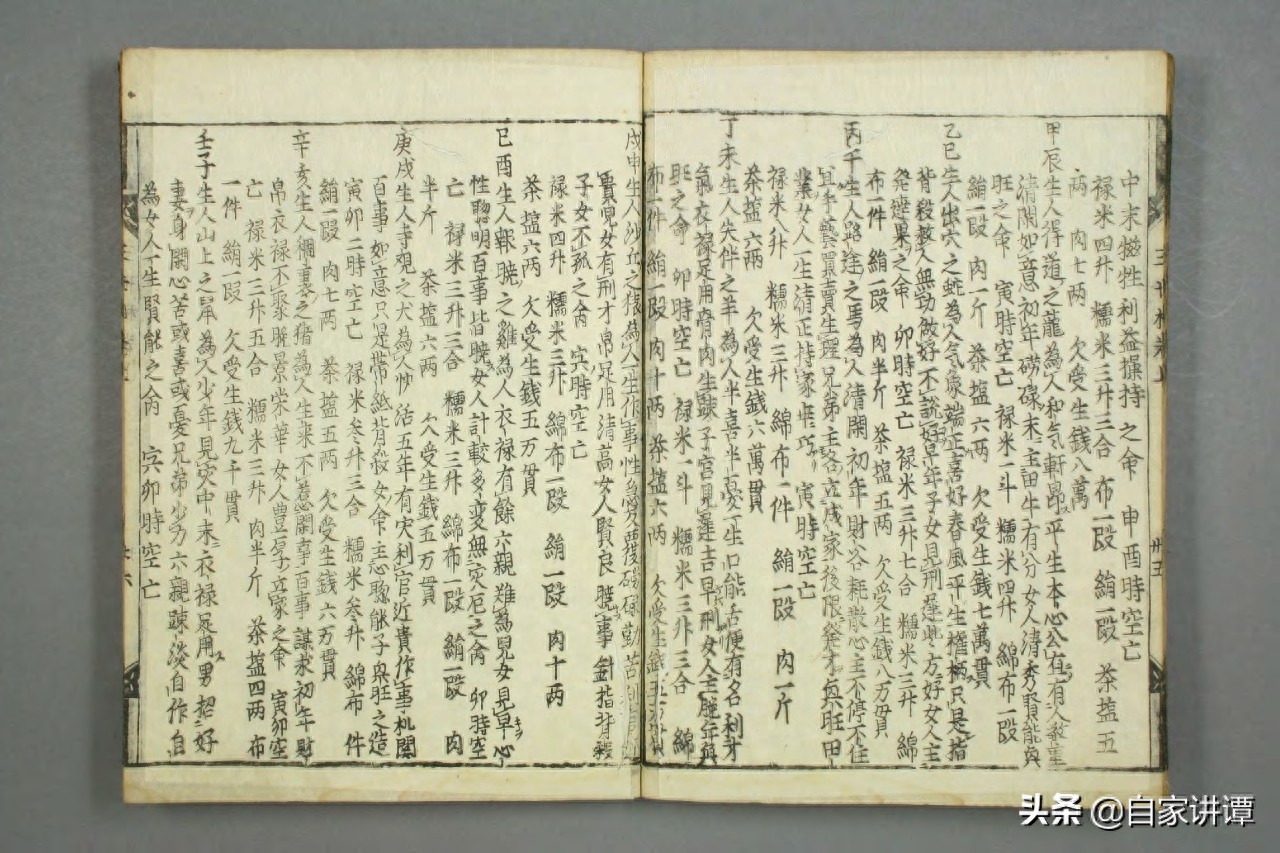 中末牺牲利益操持之命 申酉時空亡
禄米四升 糯米三升三合 布一段 絹一段 茶塩五
两 肉七两 欠受生錢八萬
甲辰生人得道之龍為人和气軒昂平生本心公直有人敬重
清閑如意初年磅碌末主田牛有分女人清秀賢能與
旺之命 寅時空亡 禄米一斗 糯米四升 綿布一段
絹一段 肉一斤 茶塩六两 欠受生錢七萬貫
乙巳生人出穴之蛇為人气象端正喜好春風平生權柄只是指
背殺救人無功做好不說好早年子女見刑遲此方好女人主
発達果之命 卯時空亡 禄米三升七合 糯米三升 綿
布一件 絹一段 肉半斤 茶塩五两 欠受生錢八万貫
丙午生人路途之馬為人清閑初年財谷耗散心主不停不住
宜手藝買賣生理兄弟主各立成家後限発才與旺田
業女人一生清正持家 寅時空亡
禄米八升 糯米三升 綿布一件 絹一段 肉一斤
茶塩六两 欠受生錢六萬貫
丁未生人失伴之羊為人半喜半憂一生口能舌便有名利才
氣衣禄足用骨肉生 子宮見遲吉早刑女人主晚年與
旺之命 卯時空亡 禄米一斗 糯米三升三合 綿
布一件 絹一段 肉十两 茶塩六两 欠受生錢五
戊申生人沙丘之猿為人一生作事性 磅碌勤苦
買 兒女有刑才帛足用清高女人賢良曉事針指背殺
子女不孤之命 寅時空亡
禄米四升 糯米三升 綿布一段 絹一段 肉十两
茶塩六两 欠受生錢五万貫
己酉生人報曉之雞為人衣禄有餘六親难為兒女見早心
性聰明百事皆曉女人計較多變無灾厄之命 卯時空
亡 禄米三升三合 糯米三升 綿布一段 絹一段 肉
半斤 茶塩六两 欠受生錢五万貫
庚戌生人寺观之犬為人快活五年有灾利官近貴作事机関
百事如意只是帶紙背殺女命主聰能子與旺之造
寅卯二時空亡 禄米叁升三合 糯米叁升 綿布 件
絹一段 茶塩五两 欠受生錢六万貫
辛亥生人 之猪為人生来不惹閑事百事謀求初年財
帛衣禄不聚晚景荣華女人豊厚立家之命 寅卯空
亡 禄米三升五合 糯米三升 肉半斤 茶塩四两 布
一件 絹一段 欠受生錢九千貫
壬子生人山上之鼠為人少年見灾中末衣禄足用男招好
妻身閑心苦或喜或憂兄弟少力六親踈淡自作自
為女人一生賢能之命 寅卯時空亡
頭条 @自家讲谭